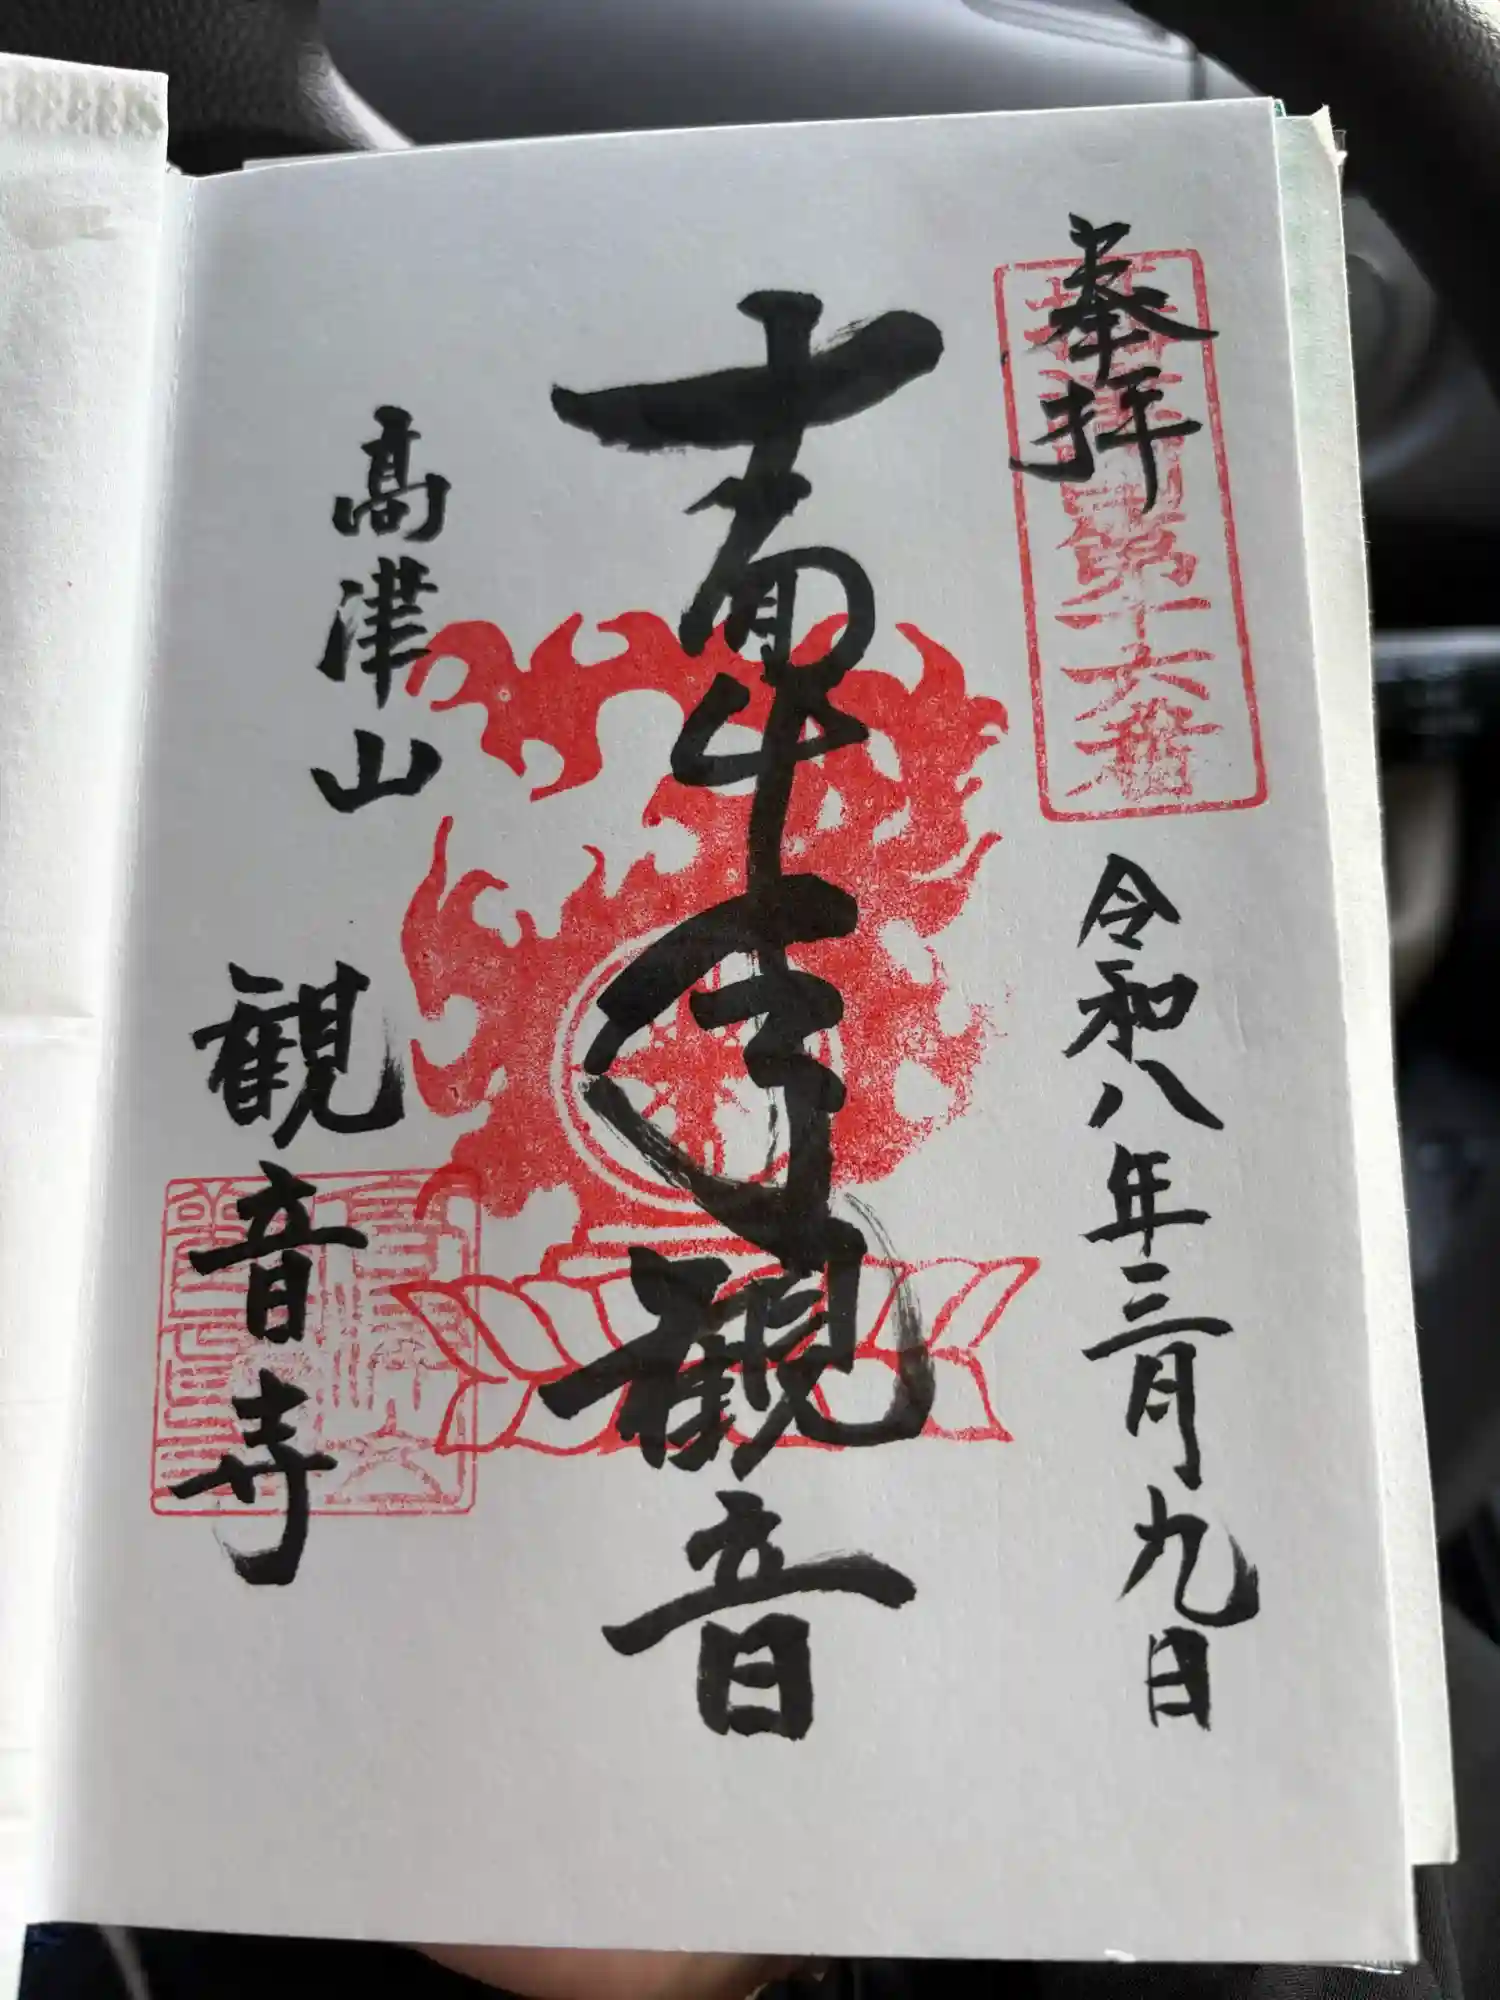 奉拝
第十六番
令和八年三月九日
十一面千手観音
高津山
観音寺